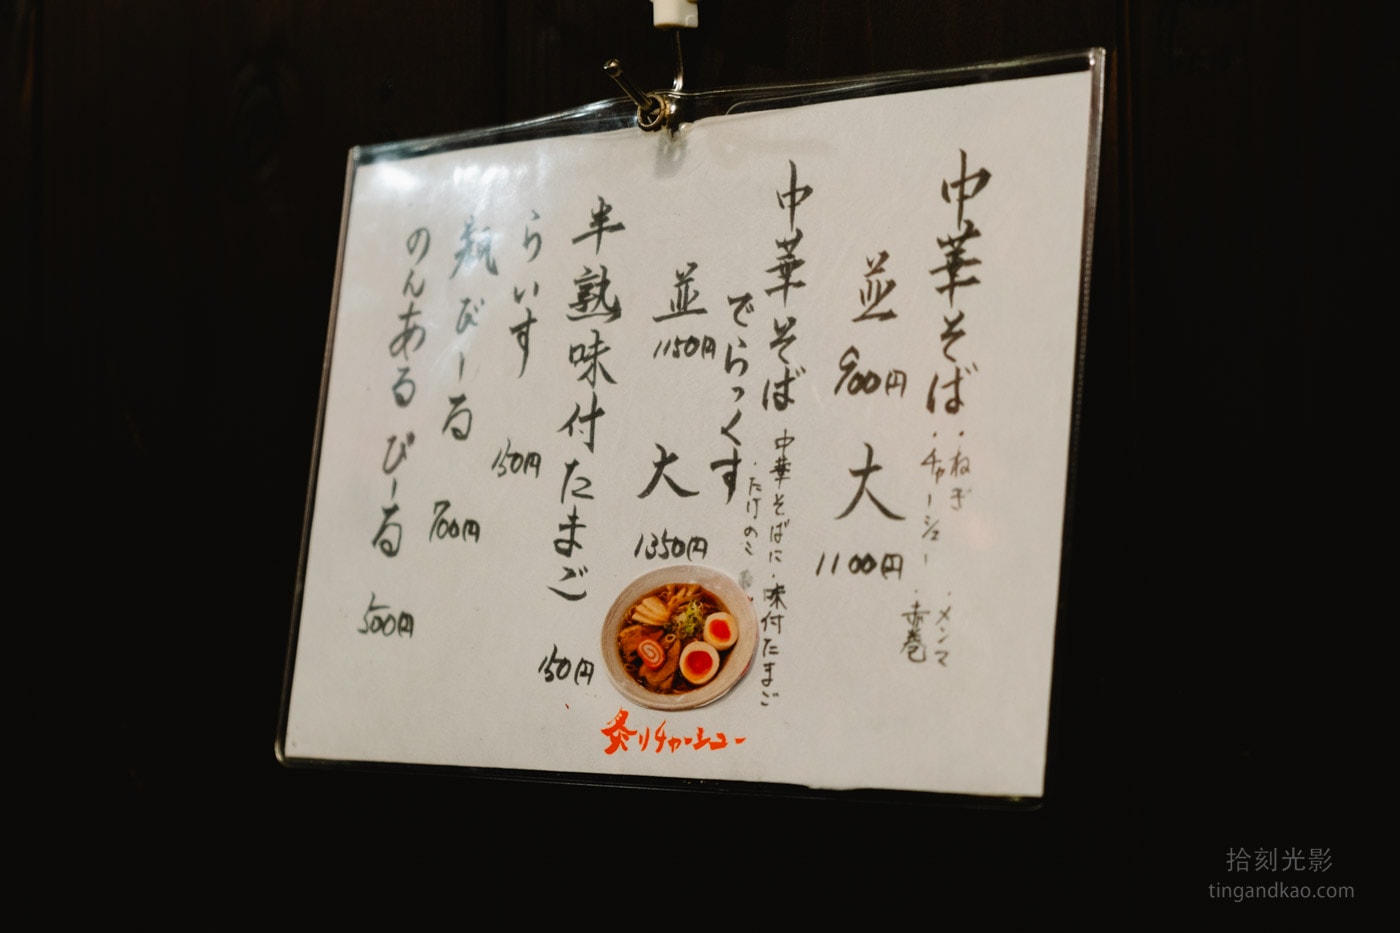 中華そば
・ねぎ
・チャーシュー
・メンマ
・赤巻
並 900円 大 1100円
中華そば
でらっくす
中華そばに・味付たまご
・たけのこ
並 1150円 大 1350円
半熟味付たまご 150円
らいす 150円
瓶びーる 700円
のんあるびーる 500円
炙りチャーシュー
拾刻光影
tingandkao.com